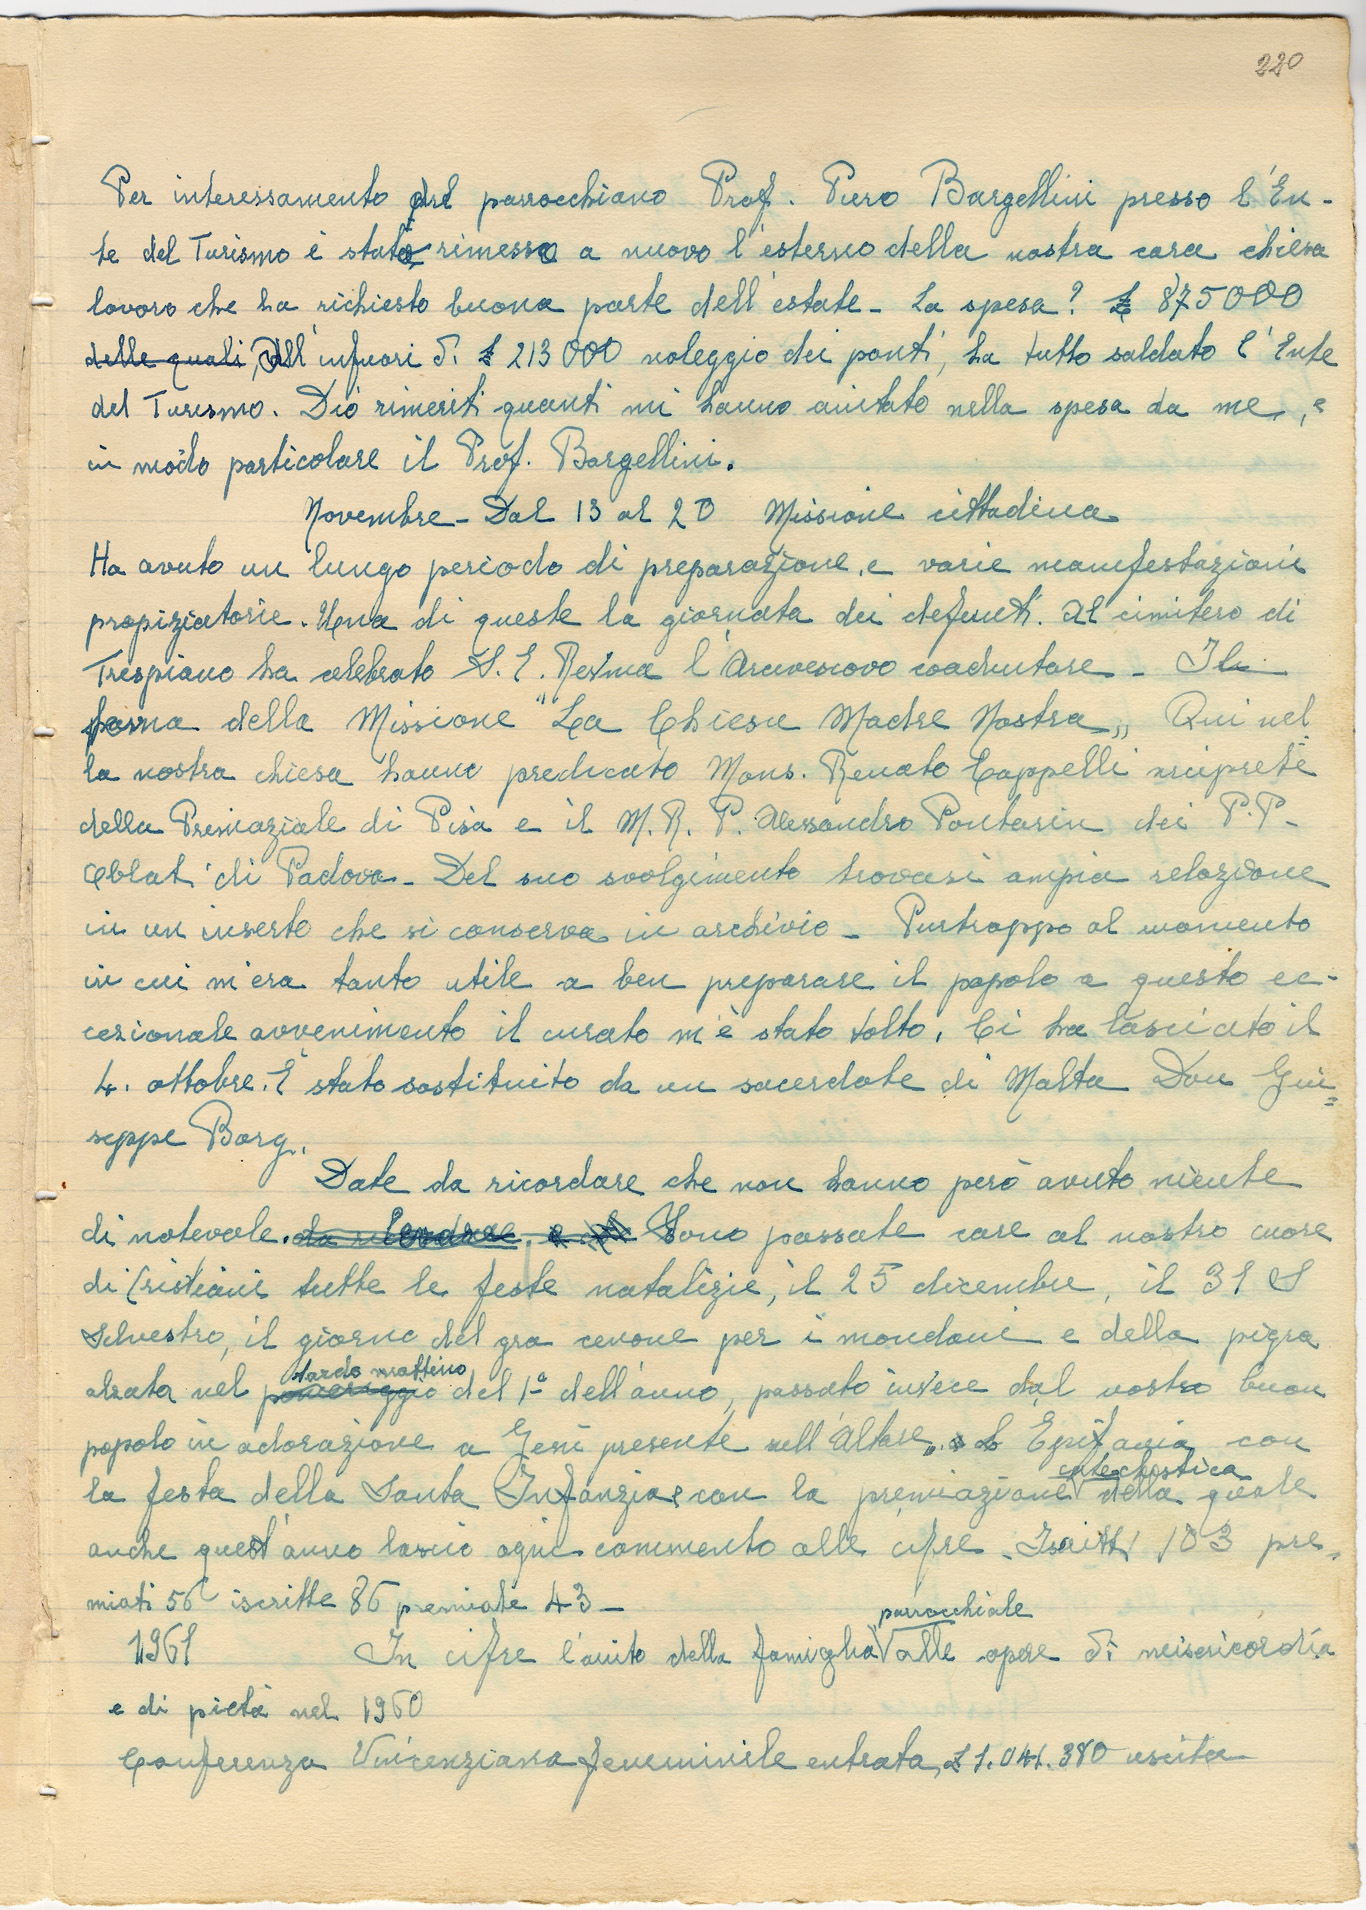 220
Per interessamento del parrocchiano Prof. Piero Bargellini presso l'En-
te del Turismo è stato rimesso a nuovo l'esterno della nostra cara chiesa
lavoro che ha richiesto buona parte dell'estate - La spesa? £ 875000
delle quali, All'infuori di £ 213000 noleggio dei ponti, ha tutto saldato l'Ente
del Turismo. Dio rimeriti quanti mi hanno aiutato nella spesa da me, e
in modo particolare il Prof. Bargellini.
Novembre - Dal 13 al 20 Missione cittadina
Ha avuto un lungo periodo di preparazione, e varie manifestazioni
propiziatorie. Una di queste la giornata dei defunti. Al cimitero di
Trespiano ha celebrato S. E. Rev/ma l'Arcivescovo coadiutore - Il
tema della Missione "La Chiesa Madre Nostra" Qui nel
la nostra chiesa hanno predicato Mons. Renato Cappelli arciprete
della Primaziale di Pisa e il M. R. P. Alessandro Pontarin dei P.P.
Oblati di Padova - Del suo svolgimento trovasi ampia relazione
in un inserto che si conserva in archivio - Purtroppo al momento
in cui m'era tanto utile a ben preparare il popolo a questo ec-
cezionale avvenimento il curato m'è stato tolto. Ci ha lasciato il
4. ottobre. E' stato sostituito da un sacerdote di Malta Don Giu=
seppe Borg.
Date da ricordare che non hanno però avuto niente
di notevole. Sono passate care al nostro cuore
di Cristiani tutte le feste natalizie, il 25 dicembre, il 31 S
Silvestro, il giorno del gra cenone per i mondani e della pigra
alzata nel pomeriggio tardo mattino del 1° dell'anno, passato invece dal nostro buon
popolo in adorazione a Gesù presente nell'Altare, L'Epifania con
la festa della Santa Infanzia e con la premiazione catechistica della quale
anche quest'anno lascio ogni commento alle cifre - Iscritti 103 pre-
miati 56 iscritte 86 premiate 43 -
1961 In cifre l'aiuto della famiglia parrocchiale alle opere di misericordia
e di pietà nel 1960
Conferenza Vincenziana femminile entrata £ 1.041.380 uscita